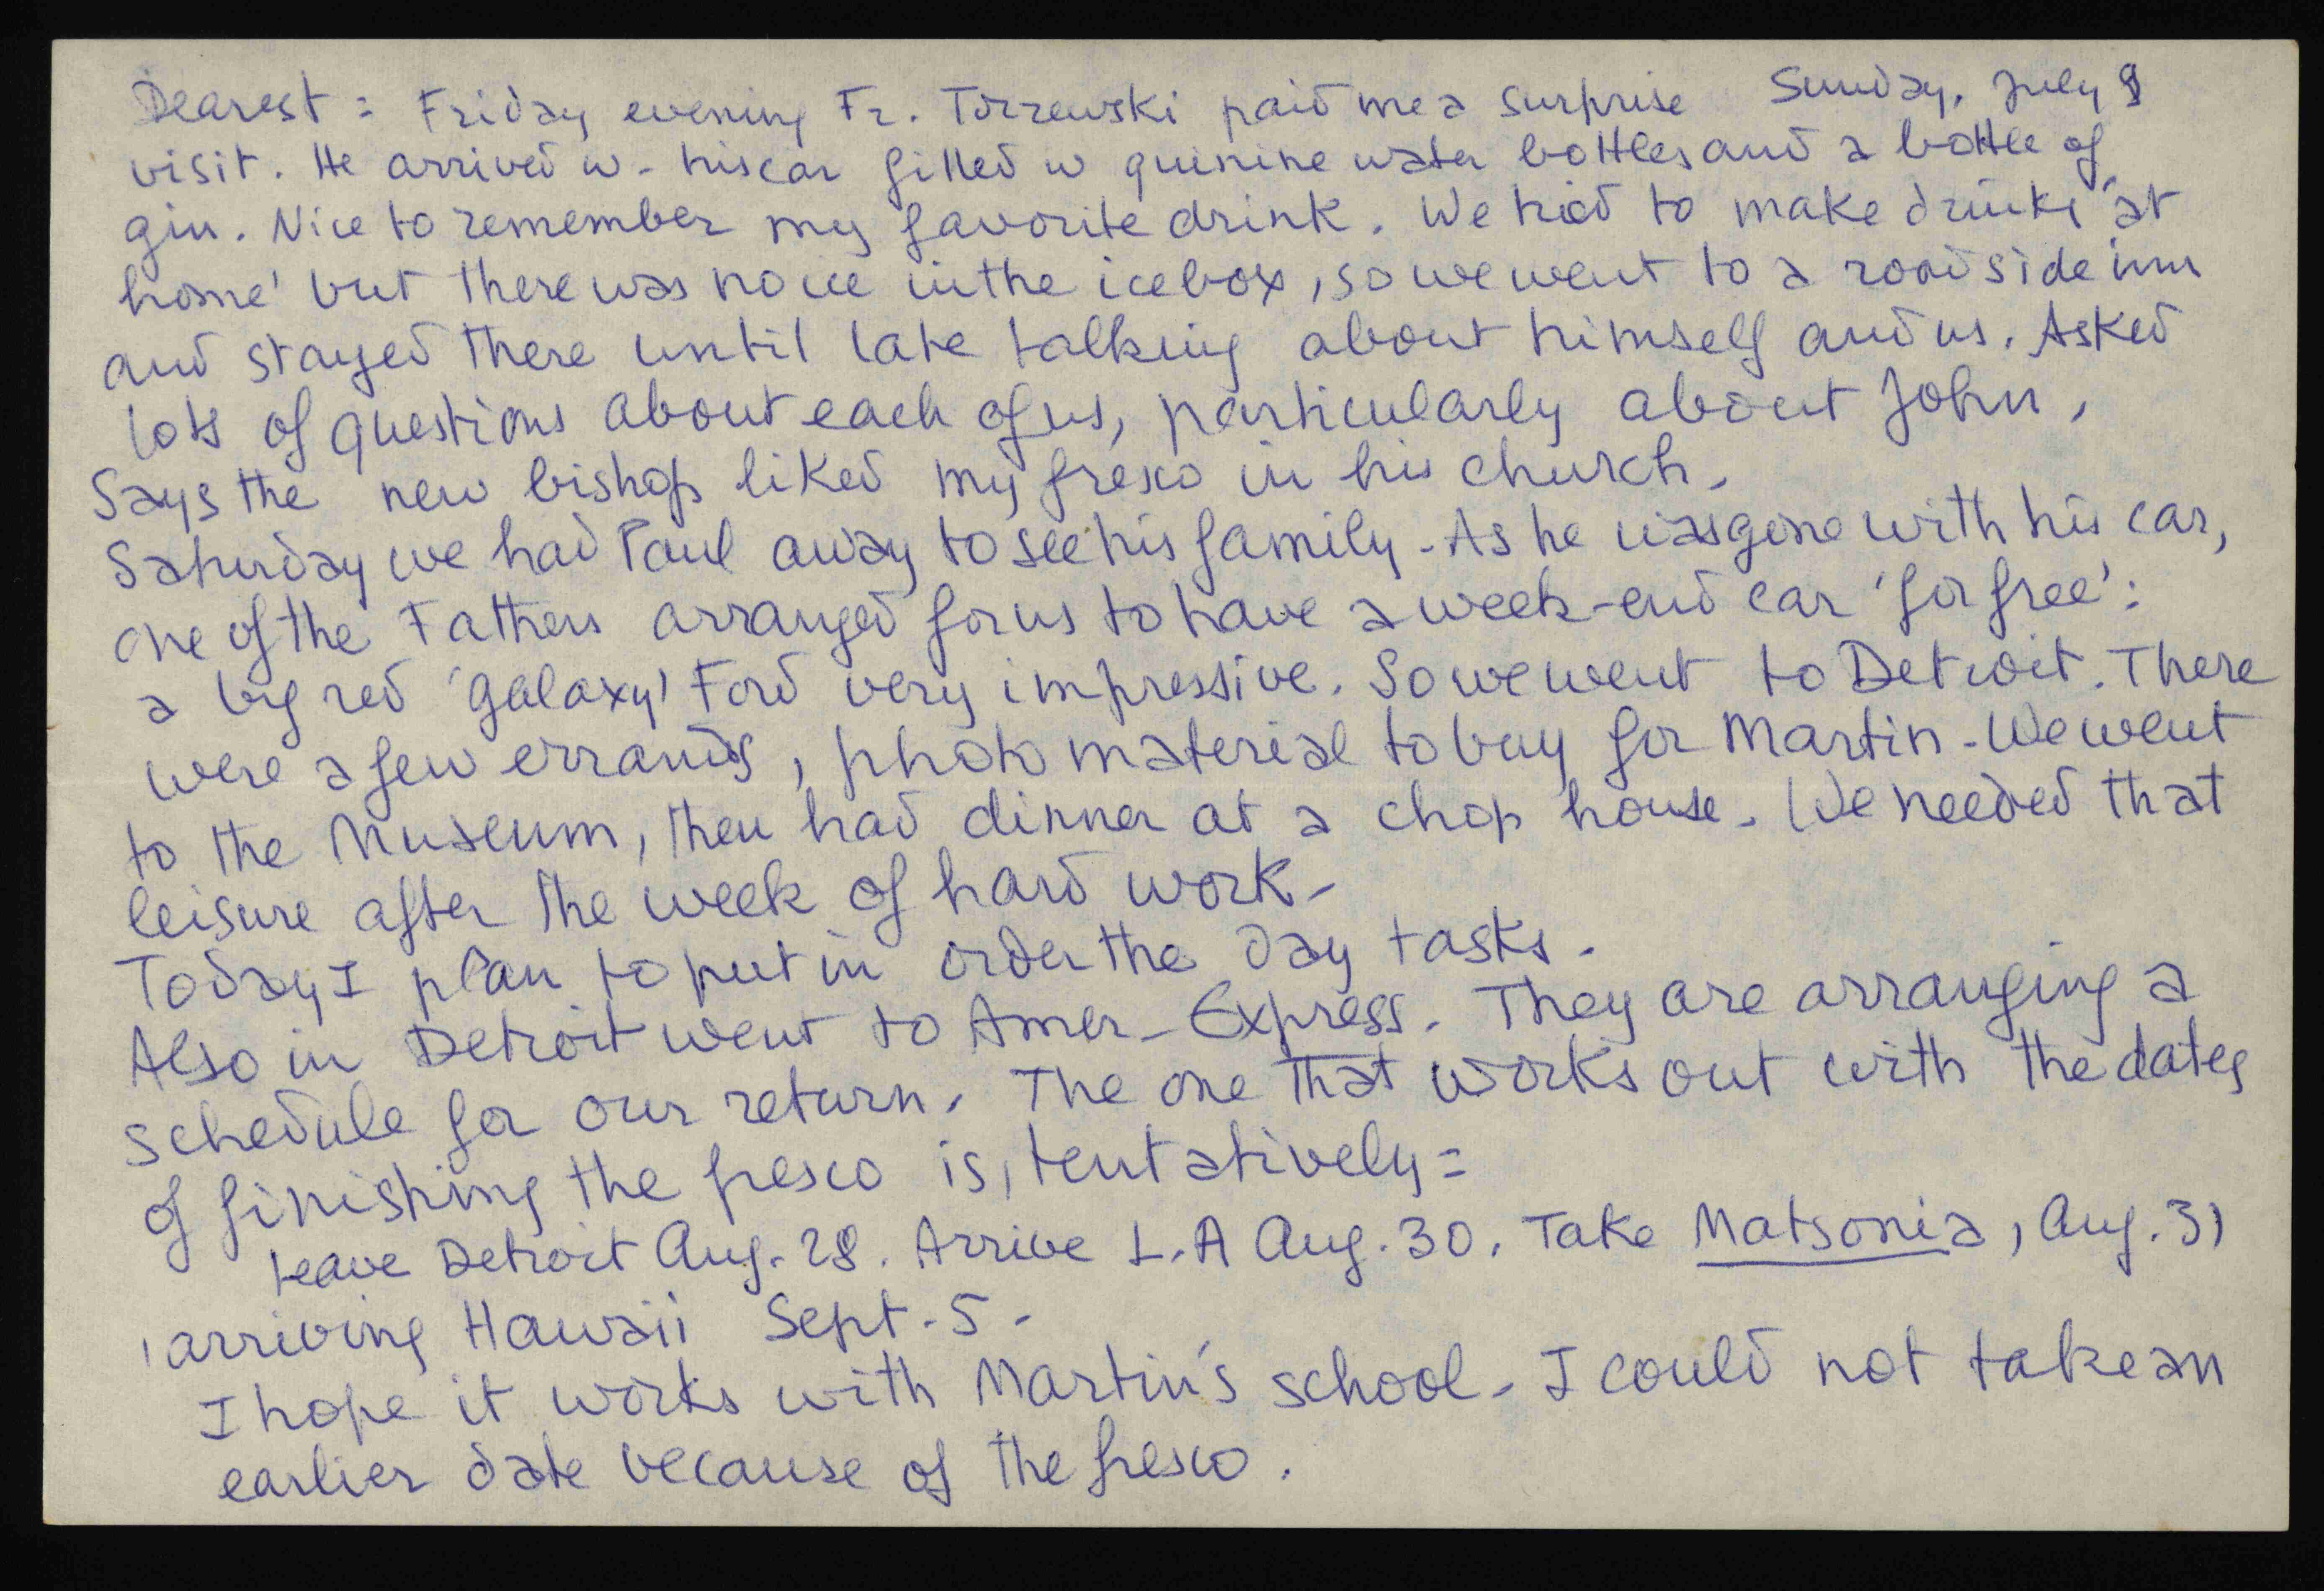 Dearest : Friday evening Fr. Torzewski paid me a surprise Sunday, July
visit. He arrived w- his car filled w quinine water bottles and a bottle of
gin. Nice to remember my favorite drink. We tried to make drinks 'at
home' but there was no ice in the icebox, so we went to a roadside inn
and stayed there until late talking about himself and us. Asked
lots of questions about each of us, particularly about John.
Says the new bishop liked my fresco in his church.
Saturday we had Paul away to see his family - As he was gone with his car,
one of the Fathers arranged for us to have a week-end car 'for free':
a big red 'galaxy' Ford very impressive. So we went to Detroit. There
were a few errands, photo material to buy for Martin - We went
to the Museum, then had dinner at a chop house. We needed that
leisure after the week of hard work -
Today I plan to put in order the day tasks.
Also in Detroit went to Amer- Express. They are arranging a
schedule for our return. The one that works out with the dates
of finishing the fresco is, tentatively =
Leave Detroit Aug. 28. Arrive L.A Aug. 30. Take Matsonia, Aug. 31
arriving Hawaii Sept. 5 -
I hope it works with Martin's school - I could not take an
earlier date because of the fresco.